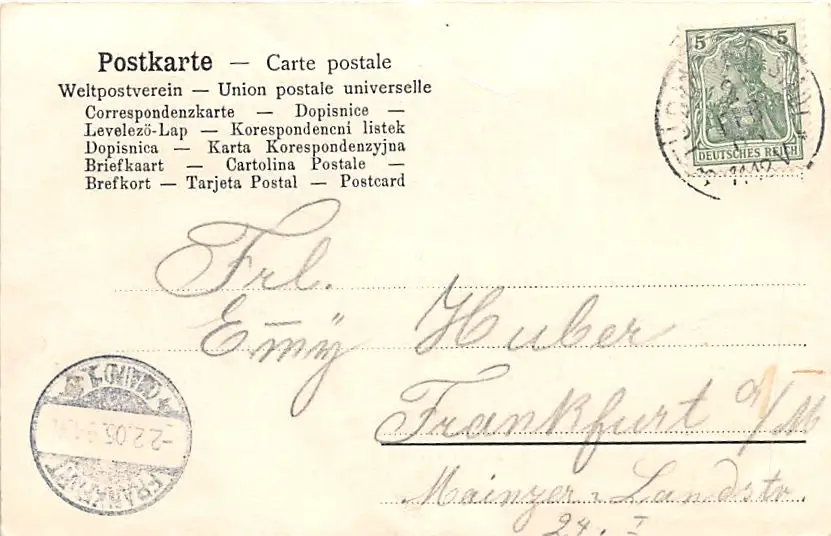 Postkarte — Carte postale
Weltpostverein — Union postale universelle
Correspondenzkarte — Dopisnice —
Levelezö-Lap — Korespondencni listek
Dopisnica — Karta Korespondenzyjna
Briefkaart — Cartolina Postale —
Brefkort — Tarjeta Postal — Postcard
5 5
DEUTSCHES REICH
Frl.
Emy Huber
Frankfurt a/M
Mainzer Landstr.
24. I
FRANKFURT
(MAIN) 1.
2.2.05.